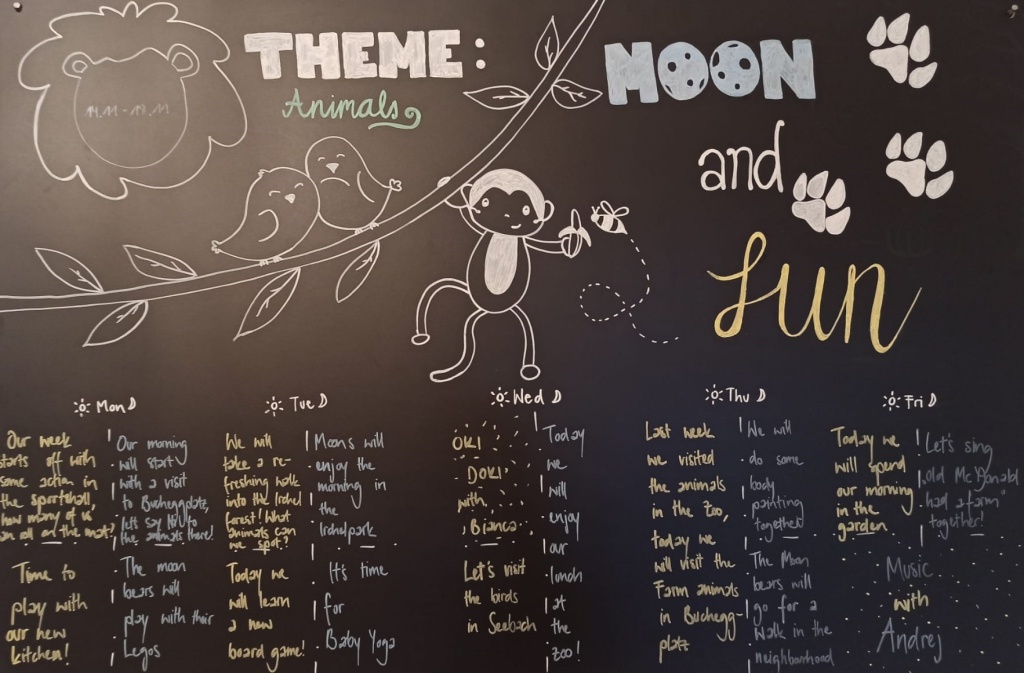 THEME:
Animals
14.11 - 18.11
MOON
and
Sun
Mon
Our week
starts off with
some action in
the sportshall,
how many of us
can all on the mat?
Our morning
will start
with a visit
to Bucheggplatz,
let's say Hi to
the animals there!
Time to
play with
our new
kitchen!
The moon
bears will
play with their
Legos
Tue
We will
take a re-
freshing walk
into the Irchel
forest! What
animals can
we spot?
Moons will
enjoy the
morning in
the
Irchelpark
Today we
will learn
a new
board game!
It's time
for
Baby Yoga
Wed
OKI
DOKI
with
Bianca
Let's visit
the birds
in Seebach
Today
we
will
enjoy
our
lunch
at
the
zoo!
Thu
Last week
we visited
the animals
in the Zoo,
today we
will visit the
Farm animals
in Buchegg-
platz
We will
do some
body
painting
together
The Moon
bears will
go for a
walk in the
neighbourhood
Fri
Today we
will spend
our morning
in the
garden
Let's sing
"old McDonald
had a farm"
together!
Music
with
Andrej